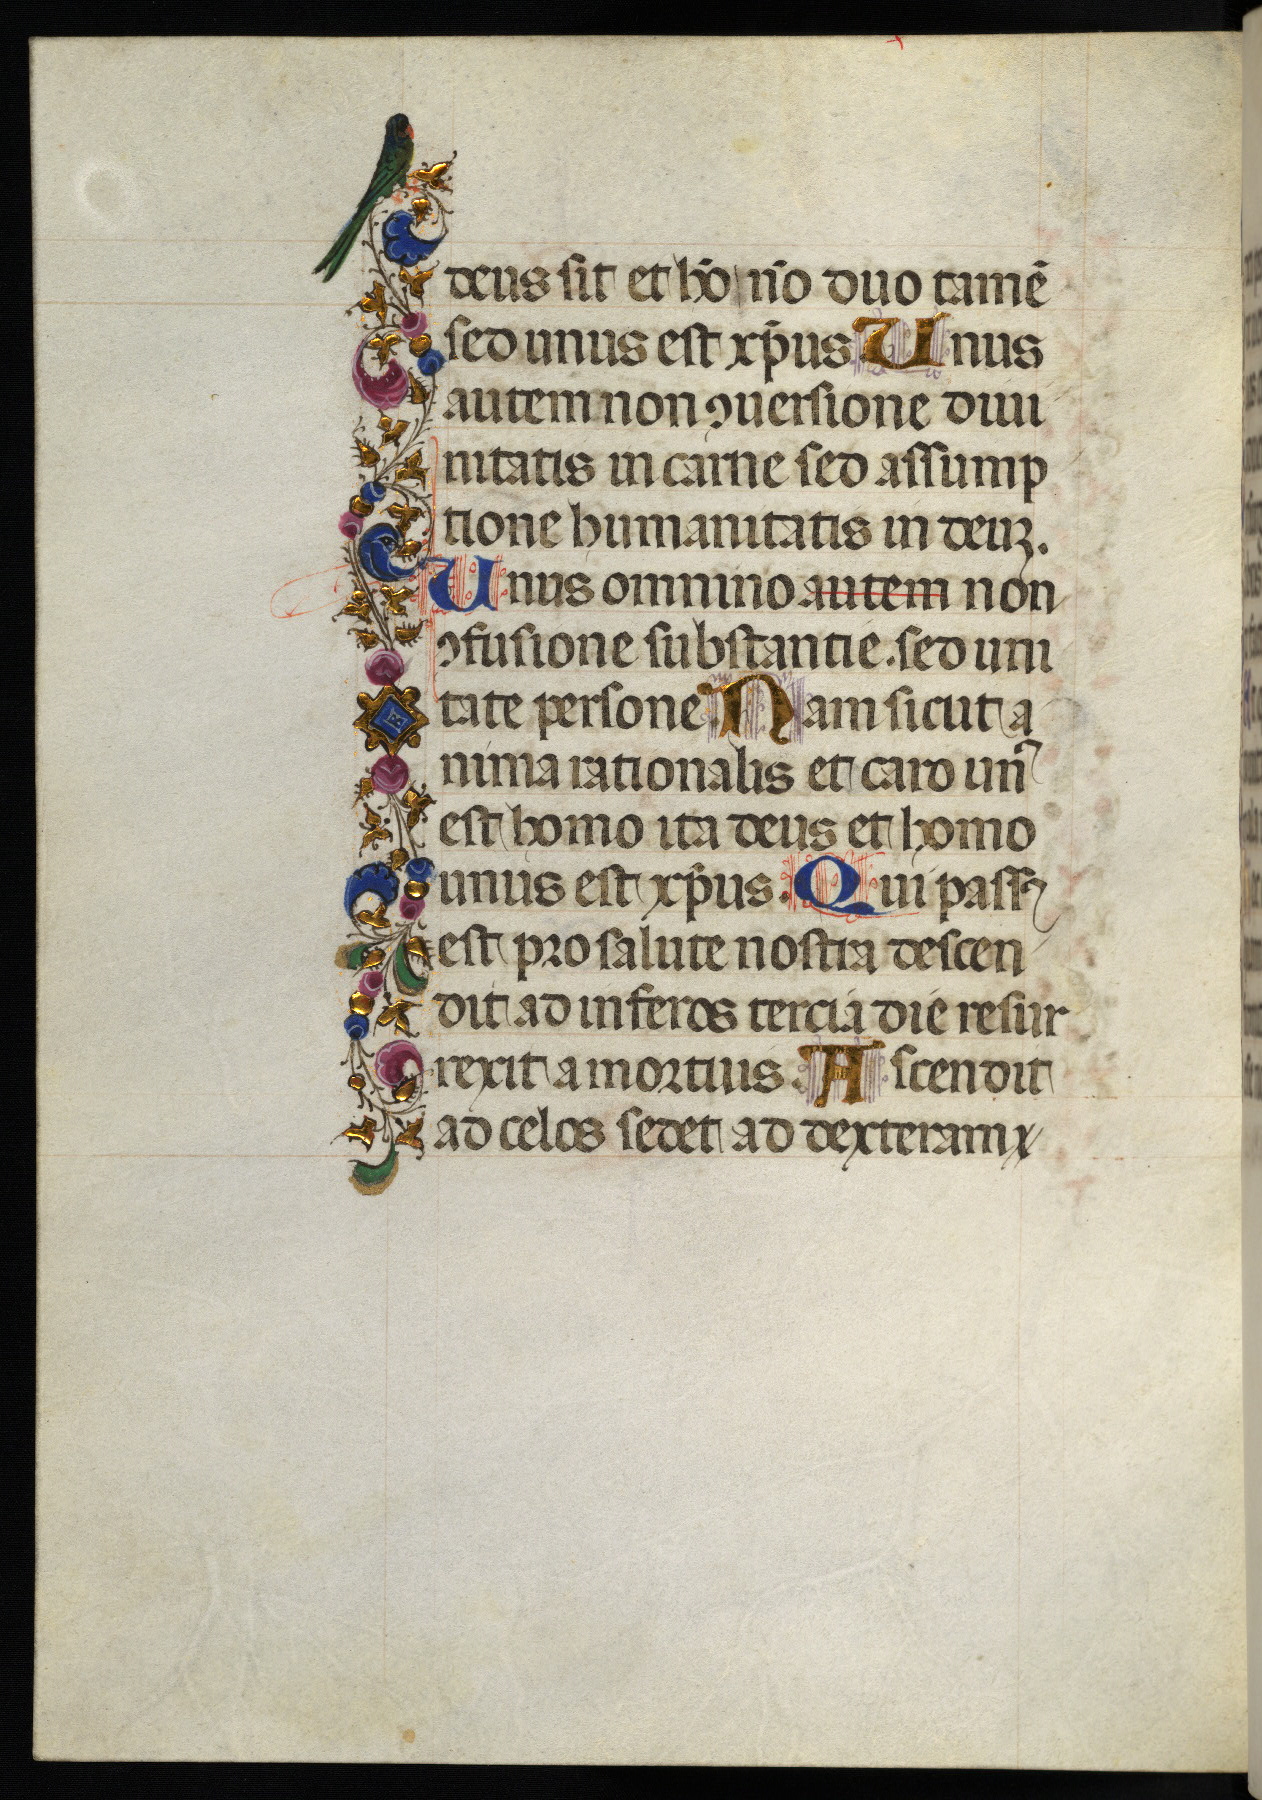 deus sit et hō nō duo tamē
sed unus est xp̄us. Unus
autem non ꝯuersione diui
nitatis in carne sed assump
tione humanitatis in deuʒ.
Unus omnino autem non
ꝯfusione substantie. sed uni
tate persone. Nam sicut a
nima rationalis et caro un̄
est homo ita deus et homo
unus est xp̄us. Qui passꝰ
est pro salute nostra descen
dit ad inferos tercia die resur
rexit a mortius. Ascendit
ad celos sedet ad dexteram